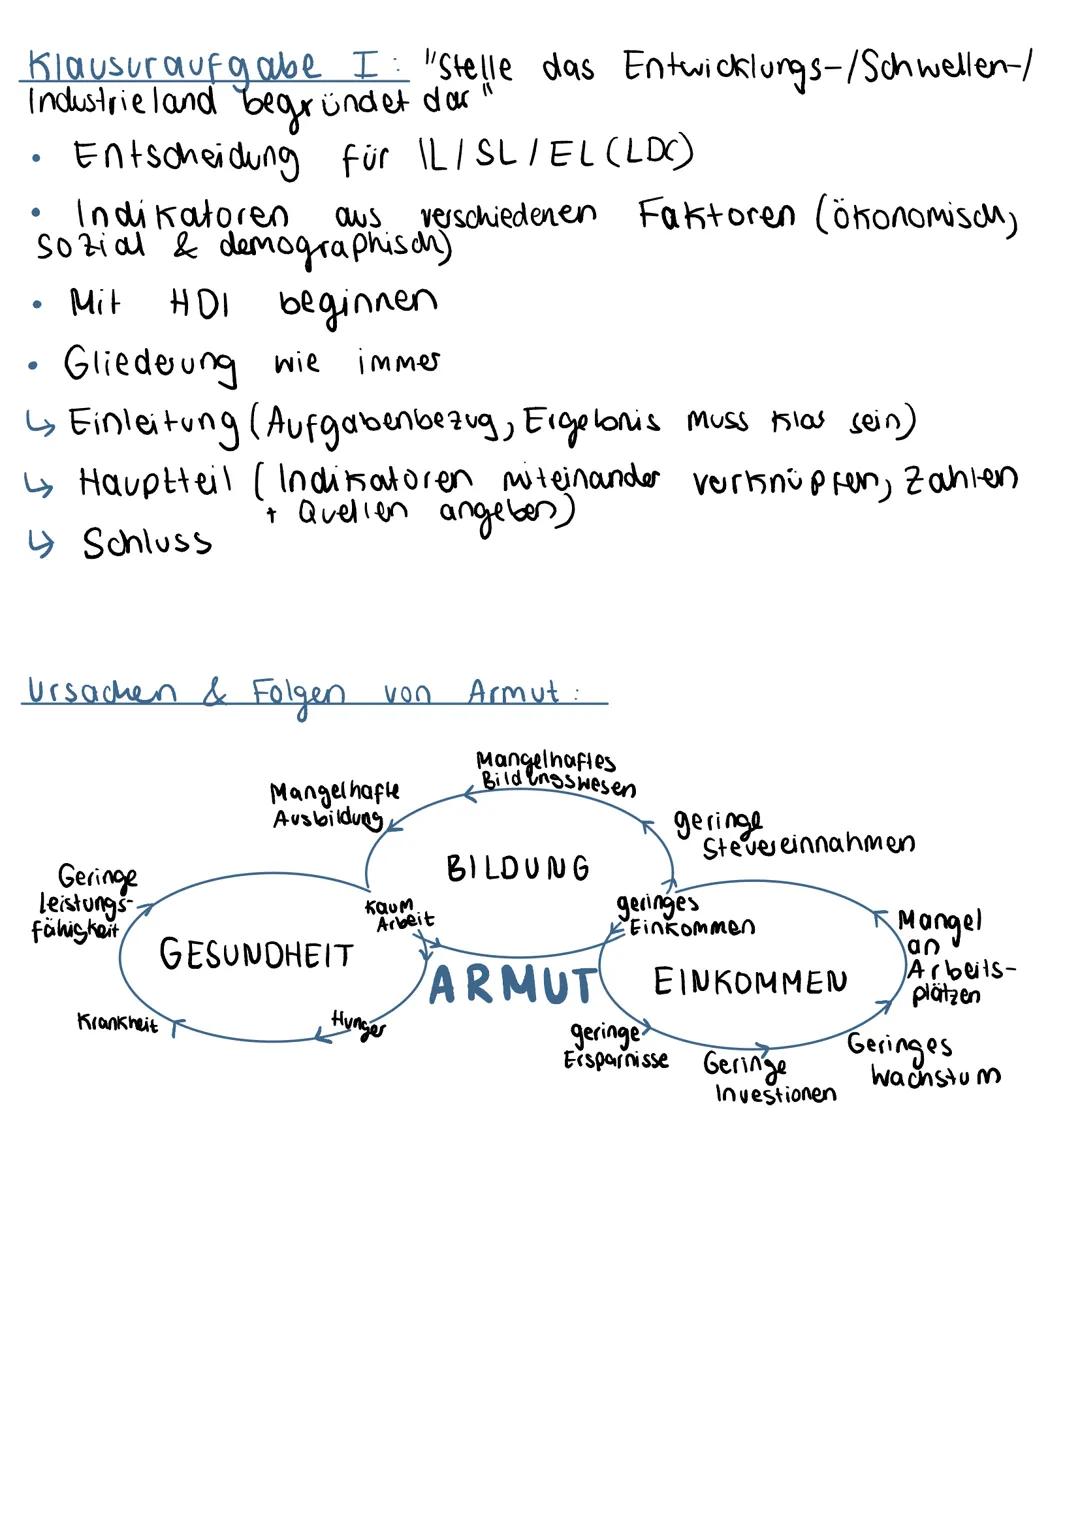 Klausuraufgabe I: "Stelle das Entwicklungs-/Schwellen-/
Industrieland begründet dar"
• Entscheidung für IL/SL/EL(LDC)
• Indikatoren aus verschiedenen Faktoren (ökonomisch,
sozial & demographisch)
• Mit HDI beginnen
• Gliederung wie immer
↳ Einleitung (Aufgabenbezug, Ergebnis muss klar sein)
↳ Hauptteil (Indikatoren miteinander verknüpfen, Zahlen
+ Quellen angeben)
↳ Schluss
Ursachen & Folgen von Armut:
Mangelhaftes
Bildungswesen
Mangelhafte
Ausbildung
geringe
Steuereinnahmen
BILDUNG
Geringe
Leistungs-
fähigkeit
Kaum
Arbeit
geringes
Einkommen
Mangel
an
Arbeits-
plätzen
GESUNDHEIT
ARMUT
EINKOMMEN
Krankheit
Hunger
geringe
Ersparnisse
Geringe
Investionen
Geringes
Wachstum